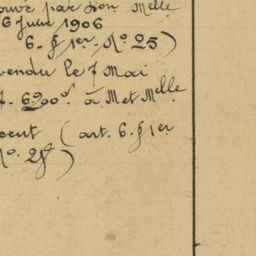 par son Melle
6 Juin 1906
6. § 1er. No 25)
vendu le 7 Mai
f. 6900f à M et Melle
cent (art. 6. § 1er
No. 28)